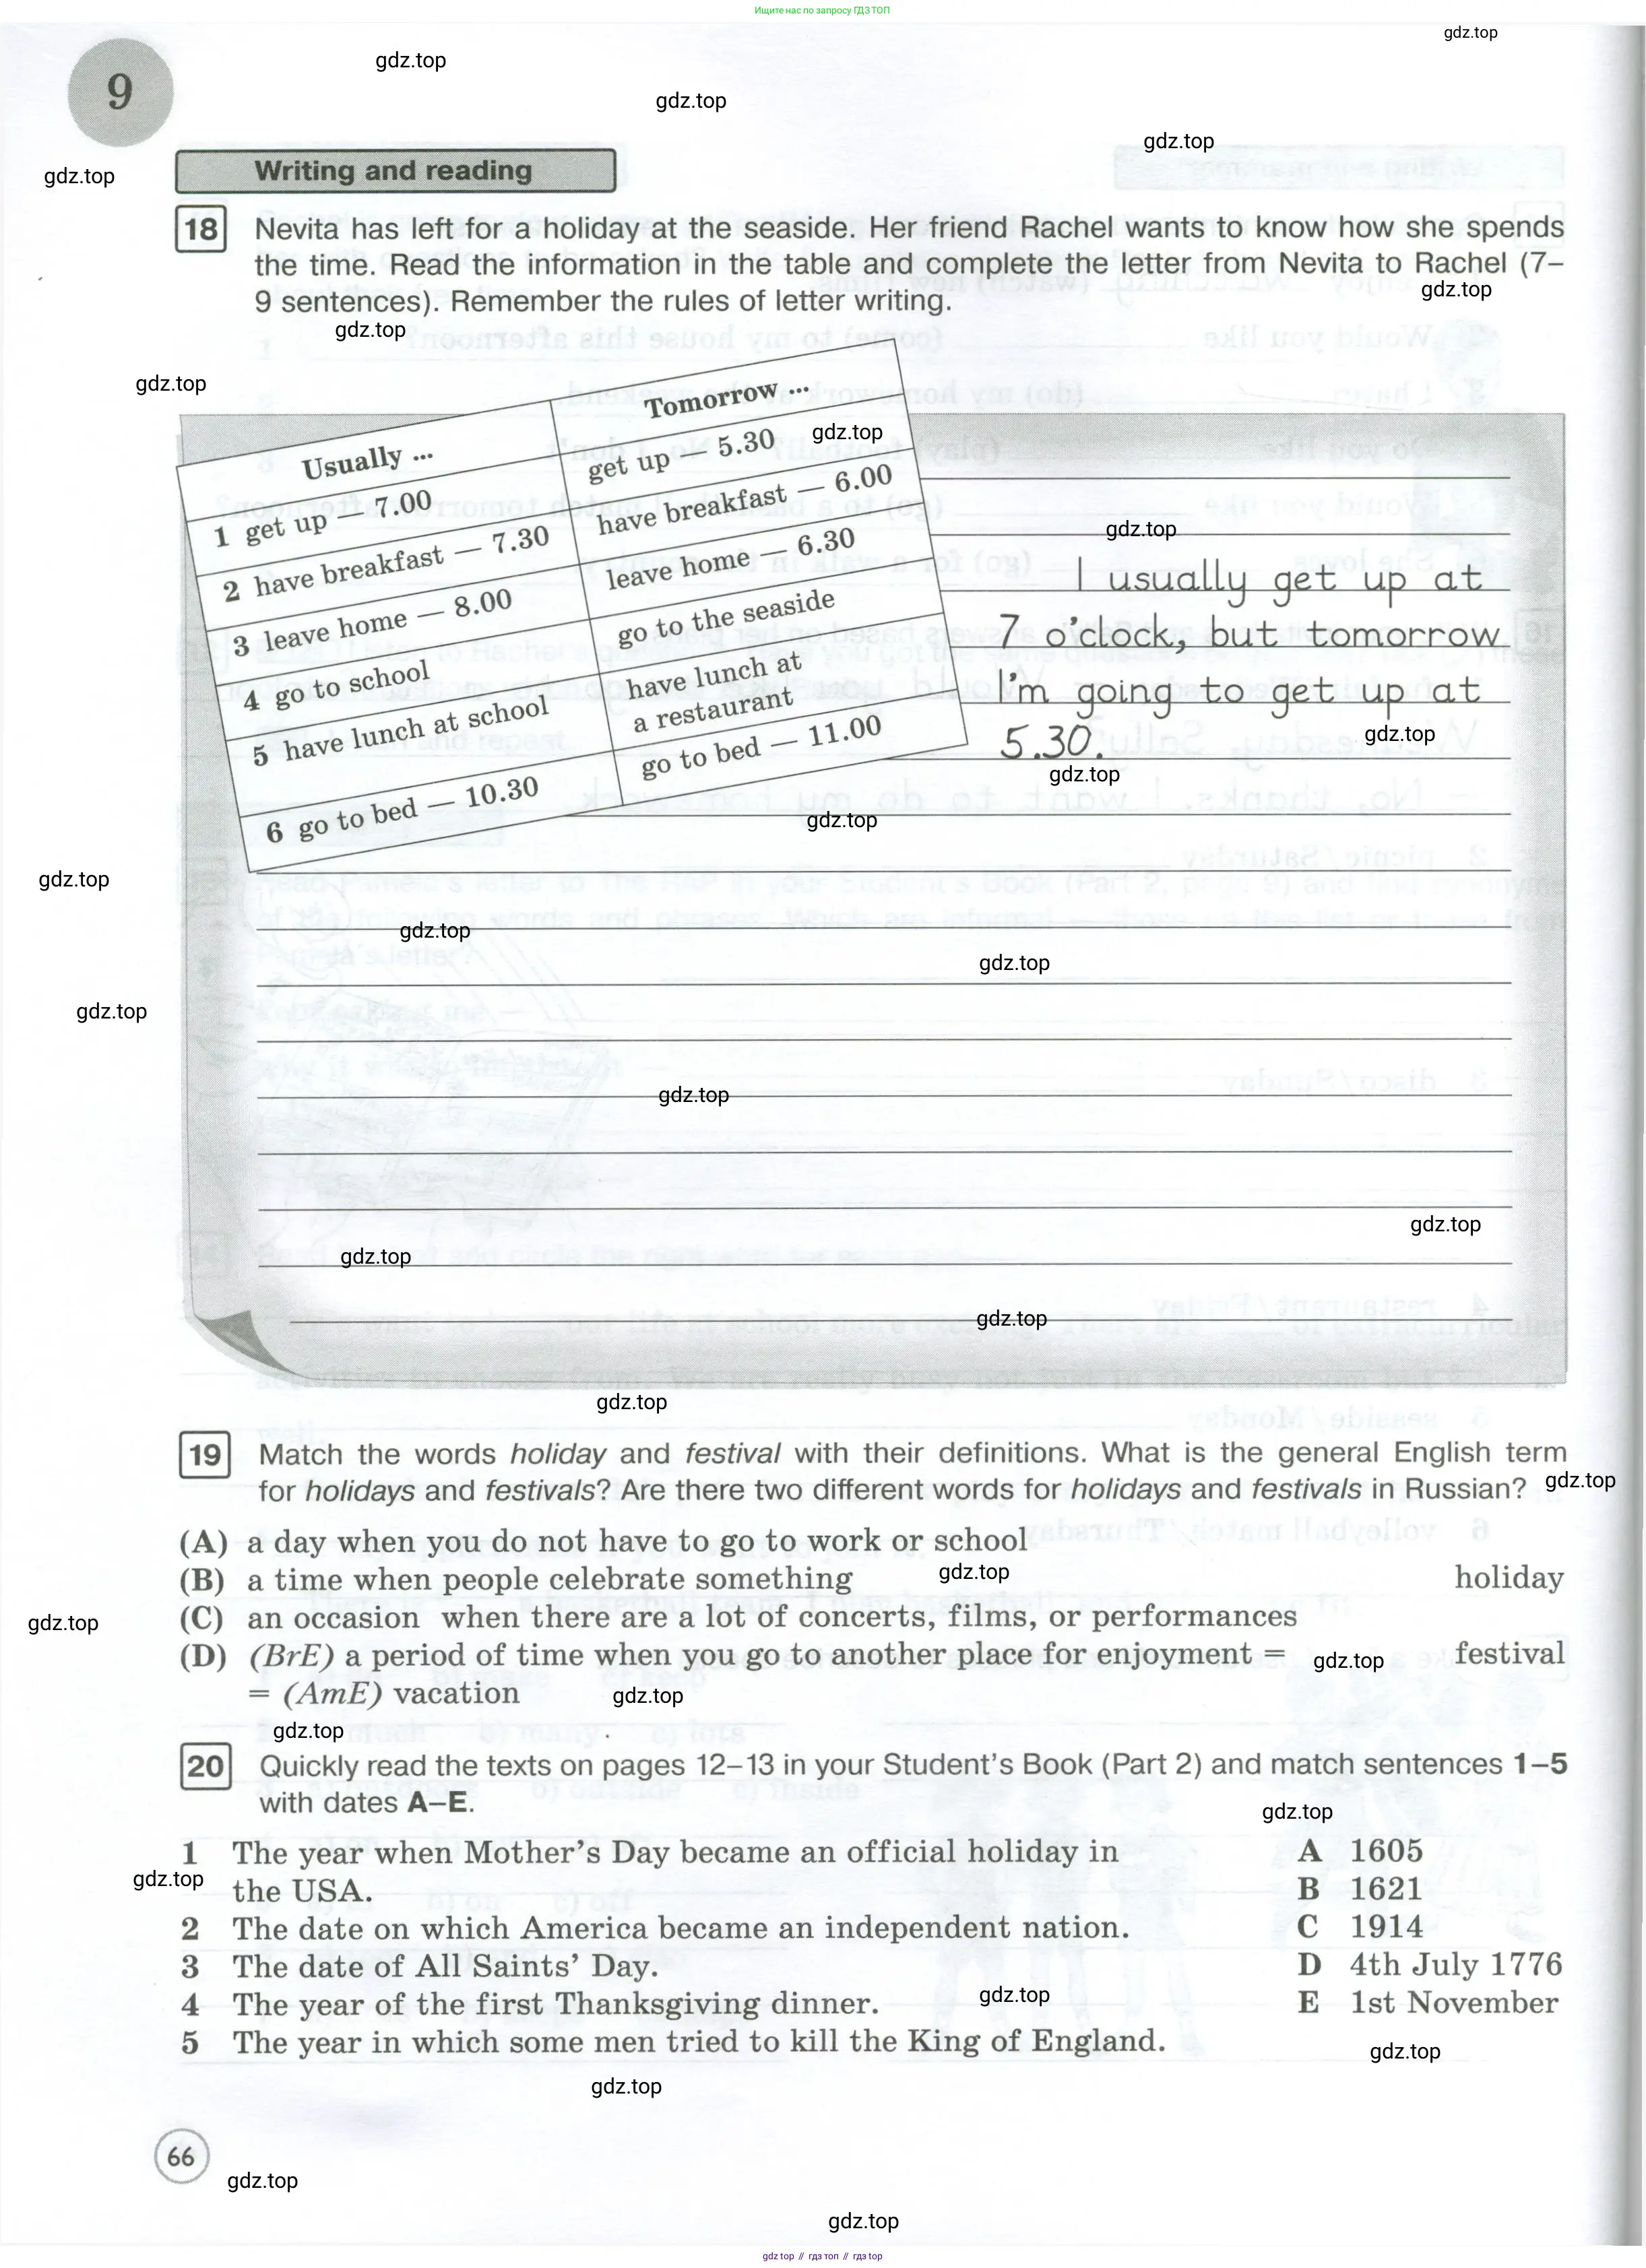 Ищите нас по запросу ГДЗ ТОП
gdz.top
9
gdz.top
gdz.top
gdz.top
gdz.top
Writing and reading
18 Nevita has left for a holiday at the seaside. Her friend Rachel wants to know how she spends
the time. Read the information in the table and complete the letter from Nevita to Rachel (7–
9 sentences). Remember the rules of letter writing.
gdz.top
gdz.top
gdz.top
Usually ...
Tomorrow ...
gdz.top
1 get up — 7.00
get up — 5.30
2 have breakfast — 7.30
have breakfast — 6.00
3 leave home — 8.00
leave home — 6.30
4 go to school
go to the seaside
5 have lunch at school
have lunch at
a restaurant
6 go to bed — 10.30
go to bed — 11.00
gdz.top
I usually get up at
7 o'clock, but tomorrow
I'm going to get up at
5.30.
gdz.top
gdz.top
gdz.top
gdz.top
gdz.top
gdz.top
gdz.top
gdz.top
gdz.top
gdz.top
gdz.top
gdz.top
19 Match the words holiday and festival with their definitions. What is the general English term
for holidays and festivals? Are there two different words for holidays and festivals in Russian?
gdz.top
(A) a day when you do not have to go to work or school
(B) a time when people celebrate something
gdz.top
holiday
(C) an occasion when there are a lot of concerts, films, or performances
gdz.top
(D) (BrE) a period of time when you go to another place for enjoyment =
gdz.top
festival
= (AmE) vacation
gdz.top
gdz.top
20 Quickly read the texts on pages 12–13 in your Student's Book (Part 2) and match sentences 1–5
with dates A–E.
gdz.top
1 The year when Mother's Day became an official holiday in
the USA.
gdz.top
2 The date on which America became an independent nation.
3 The date of All Saints' Day.
4 The year of the first Thanksgiving dinner.
5 The year in which some men tried to kill the King of England.
A 1605
B 1621
C 1914
D 4th July 1776
E 1st November
gdz.top
gdz.top
gdz.top
66
gdz.top
gdz.top
gdz top // гдз топ // gdz top